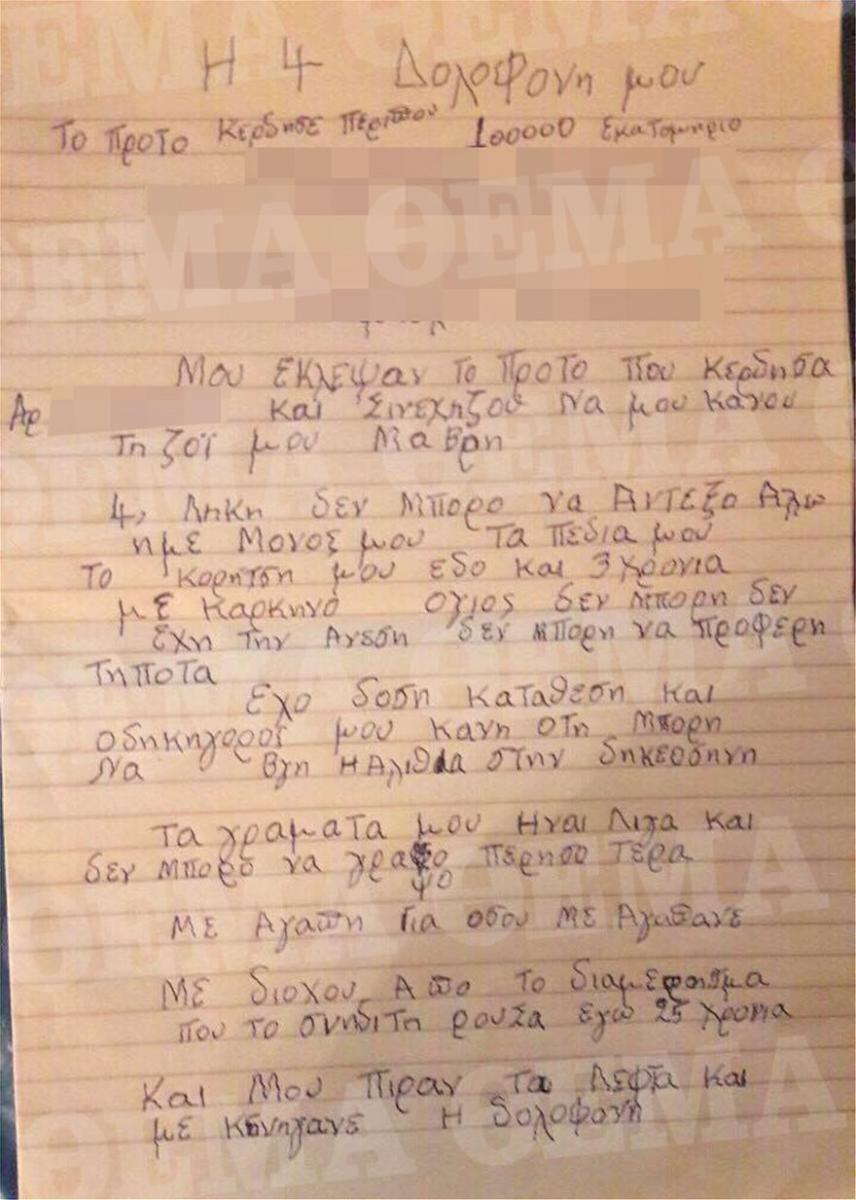 Η 4 Δολοφονη μου
Το Προτο Κερδησε Περιπου 100000 Εκατομηριο
Μου Εκλεψαν το Προτο που Κερδησα
Αρ
Και Σινεχηζου Να μου Κανου
Τη ζοϊ μου ΜαΒρη
4, Ληκη δεν Μπορο να Αντεξο Αλω
ημε Μονος μου Τα πεδια μου
Το Κορητση μου εδο και 3 χρονια
με καρκηνο ογιος δεν Μπορη δεν
εχη την Ανεση δεν Μπορη να προφερη
Τηποτα
Εχο δοση καταθεση και
οδηκηγοροι μου κανη οτη Μπορη
Να Βγη Η Αλιθια στην δηκεοδηνη
Τα γραματα μου Ηναι Λιγα και
δεν Μπορο να γραψο περησο τερα
ψο
Με Αγαπη Για οσου Με Αγαπανε
Με διοχου Απο το διαμερησμα
που το συνδιτη ρουσα εγω 25 χρονια
Και Μου Πιραν τα Λεφτα και
με Κηνηγανε Η δολοφονη
ΘΕΜΑ ΘΕΜΑ